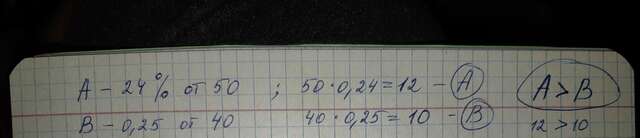 А – 24% от 50 ; 50·0,24=12 – А А>В
В – 0,25 от 40 40·0,25=10 – В 12>10